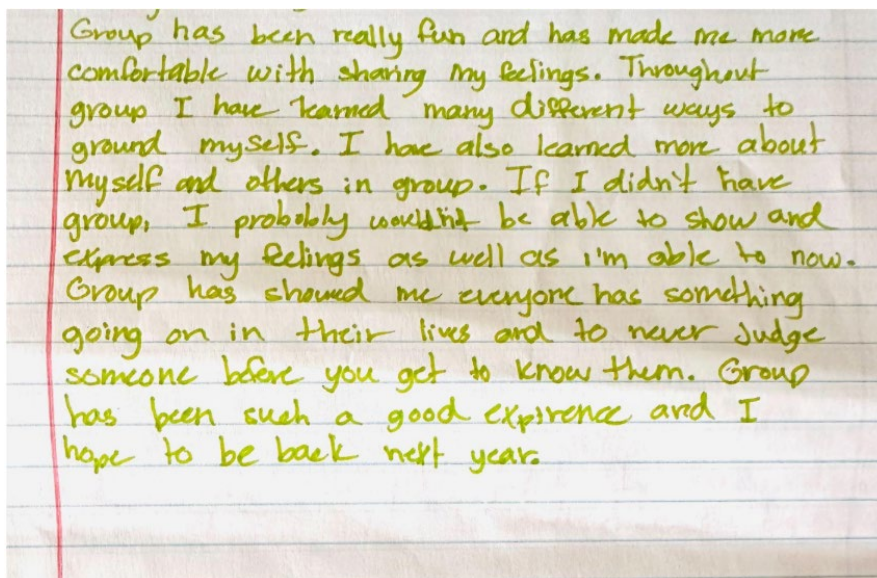 Group has been really fun and has made me more
comfortable with sharing my feelings. Throughout
group I have learned many different ways to
ground myself. I have also learned more about
myself and others in group. If I didn't have
group, I probobly wouldn't be able to show and
express my feelings as well as i'm able to now.
Group has showed me everyone has something
going on in their lives and to never judge
someone before you get to know them. Group
has been such a good expirence and I
hope to be back next year.